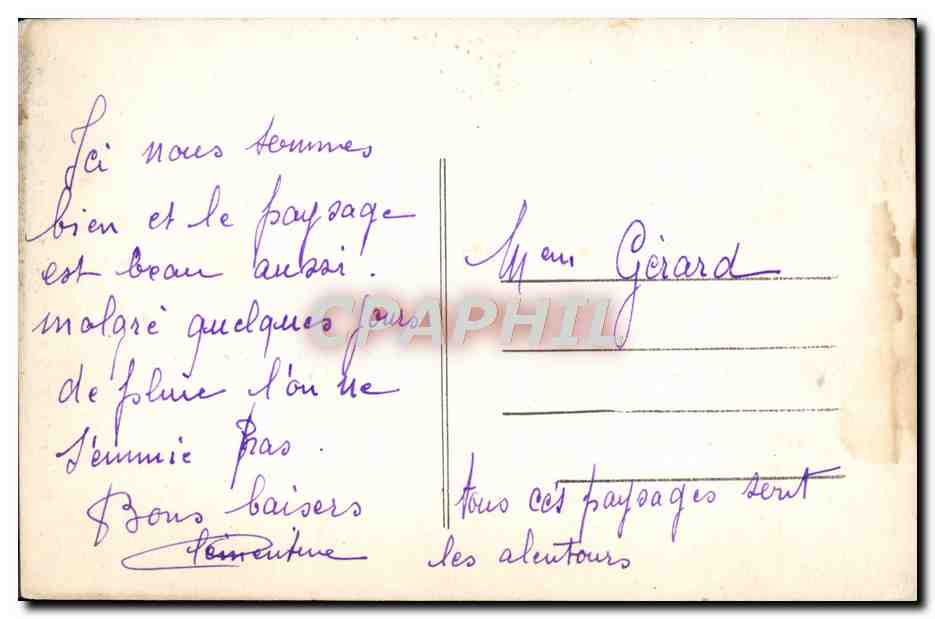 Ici nous sommes
bien et le paysage
est beau aussi.
malgré quelques jours
de pluie l'on ne
s'ennuie pas.
Bons baisers
Clementine
Gérard
tous ces paysages sont
les alentours
CPAPHIL